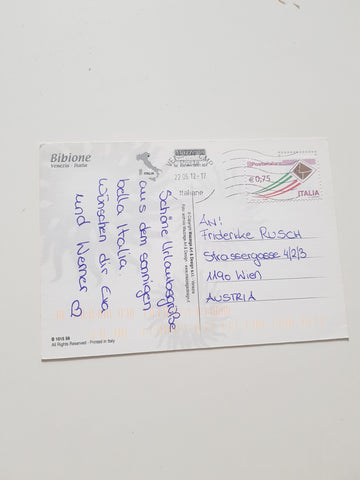 Bibione
Venezia - Italia
ITALIA
22.05.12-17
Italiane
Posteitaliane
€0,75
ITALIA
Schöne Urlaubsgrüße
aus dem sonnigen
bella Italia.
wünschen dir Eva
und Werner
AN:
Friderike RUSCH
Strassergasse 4/2/3
1190 Wien
AUSTRIA
B 1015 SB
All Rights Reserved - Printed in Italy